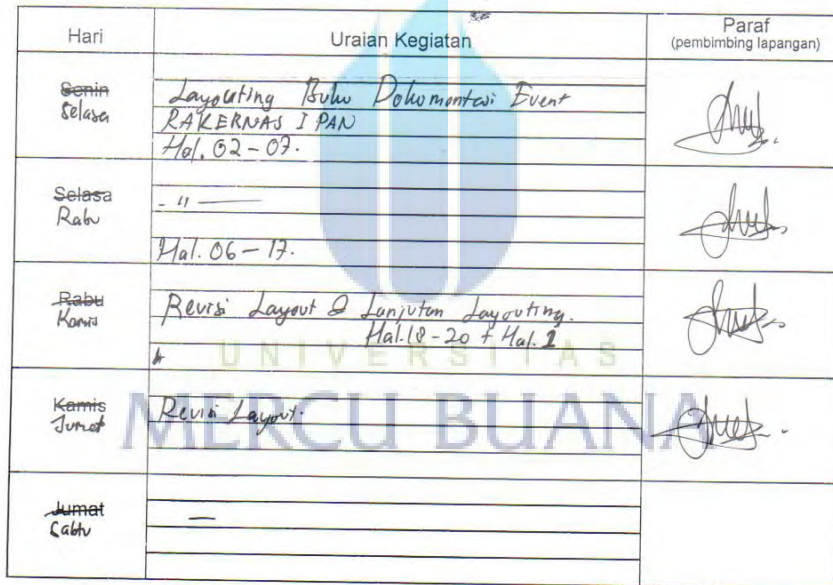 Hari Uraian Kegiatan Paraf
(pembimbing lapangan)
Senin
Selasa
Layouting Buku Dokumentasi Event
RAKERNAS I PAN
Hal. 02 - 07.
Selasa
Rabu
- 11 —
Hal. 06 - 17.
Rabu
Kamis
Revisi Layout & Lanjutan Layouting.
Hal. 18 - 20 + Hal. 1
UNIVERSITAS
Kamis
Jumat
Revisi Layout.
MERCU BUANA
Jumat
Sabtu
—